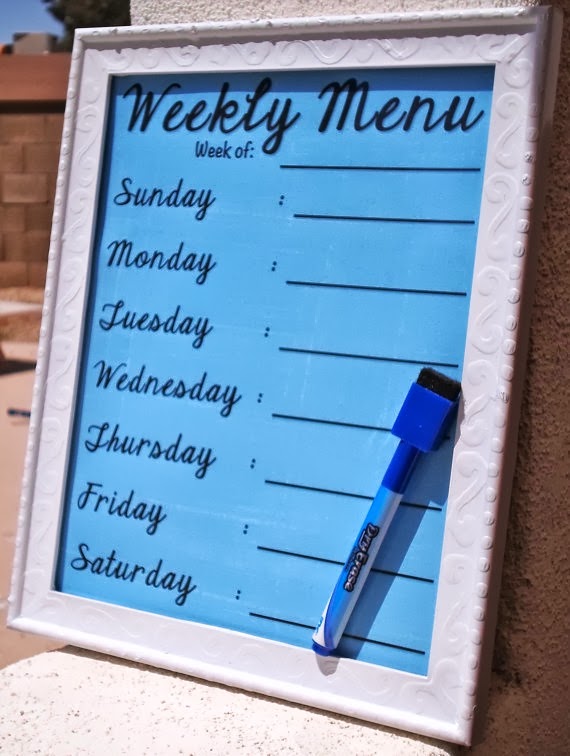 Weekly Menu
Week of:
Sunday :
Monday :
Tuesday :
Wednesday :
Thursday :
Friday :
Saturday :
Dry Erase